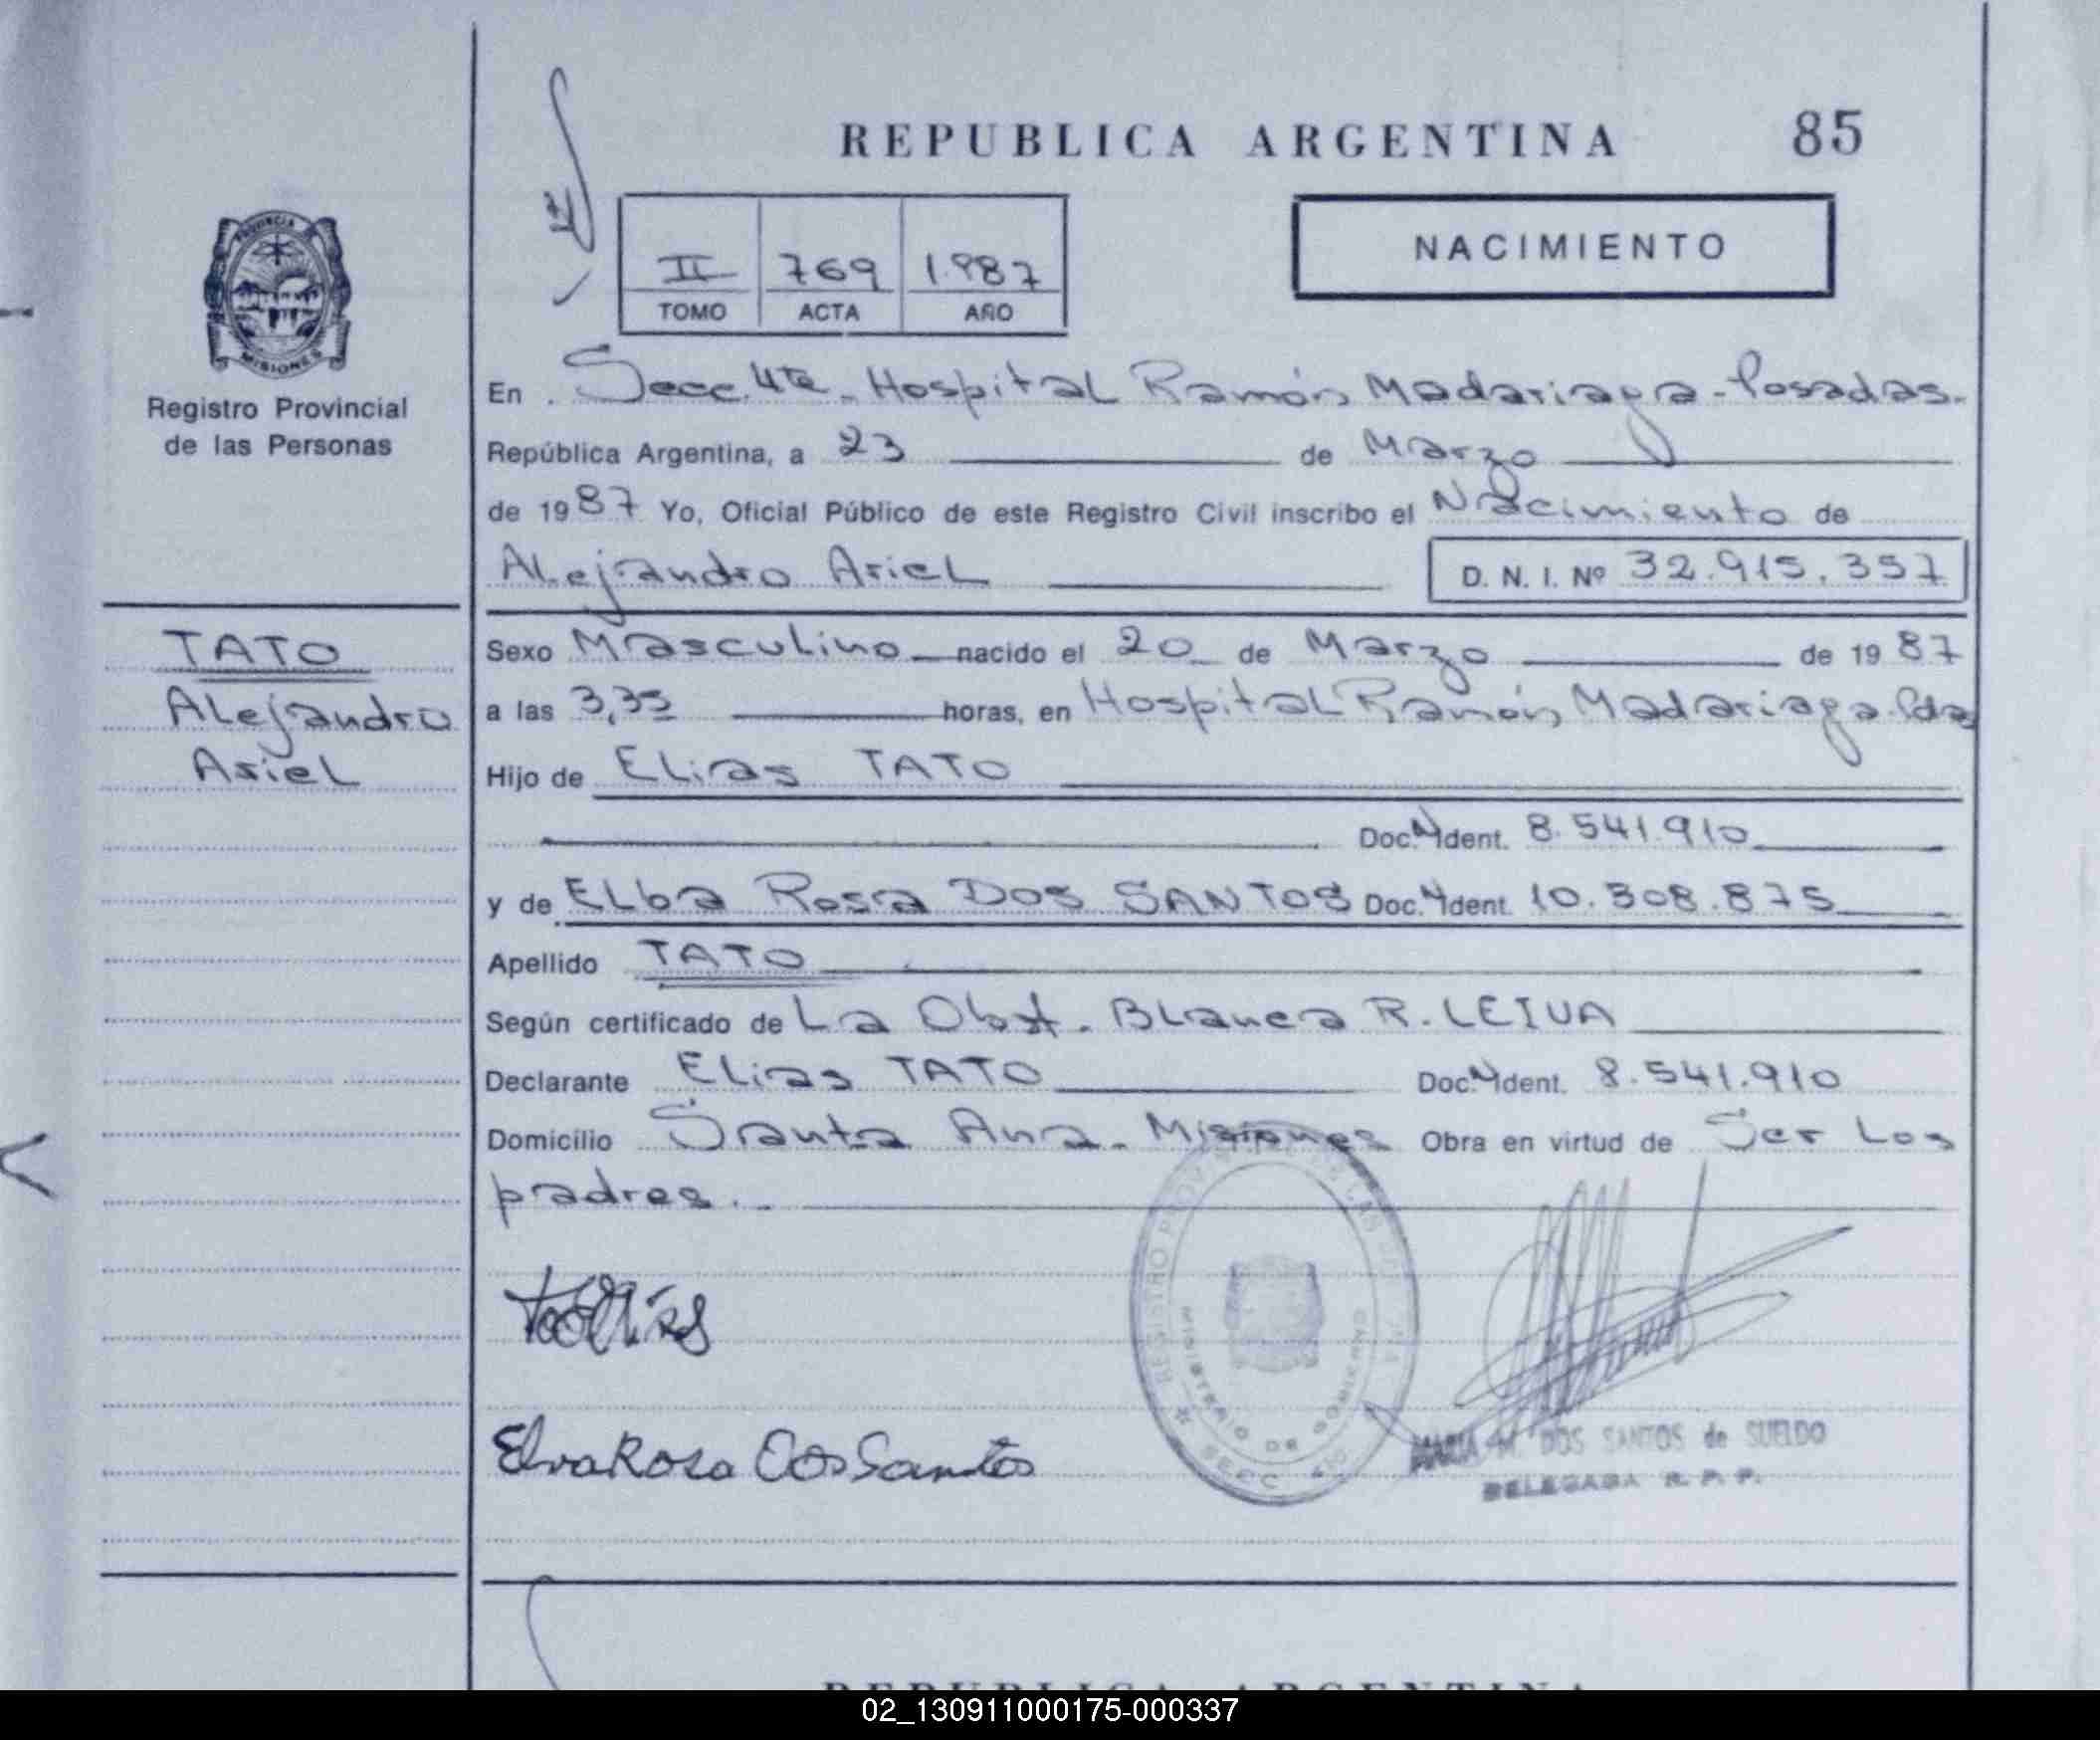 REPUBLICA ARGENTINA 85
II 769 1.987
TOMO ACTA AÑO
NACIMIENTO
PROVINCIA
MISIONES
Registro Provincial
de las Personas
En Secc. 4ta. Hospital Ramón Madariaga - Posadas.
República Argentina, a 23 de Marzo
de 1987 Yo, Oficial Público de este Registro Civil inscribo el Nacimiento de
Alejandro Ariel D. N. I. Nº 32.915.357
TATO
Alejandro
Ariel
Sexo Masculino nacido el 20 de Marzo de 1987
a las 3,35 horas, en Hospital Ramón Madariaga. Pdas
Hijo de Elias TATO
Doc. Ident. 8.541.910
y de Elba Rosa DOS SANTOS Doc. Ident. 10.308.875
Apellido TATO
Según certificado de La Obst. Blanca R. LEIVA
Declarante Elias TATO Doc. Ident. 8.541.910
Domicilio Santa Ana. Misiones Obra en virtud de Ser Los
padres.
Elva Rosa Dos Santos
REGISTRO PROVINCIAL DE LAS PERSONAS
MINISTERIO DE GOBIERNO
SECC
MARIA M. DOS SANTOS de SUELDO
DELEGADA R. P. P.
REPUBLICA ARGENTINA
02_130911000175-000337